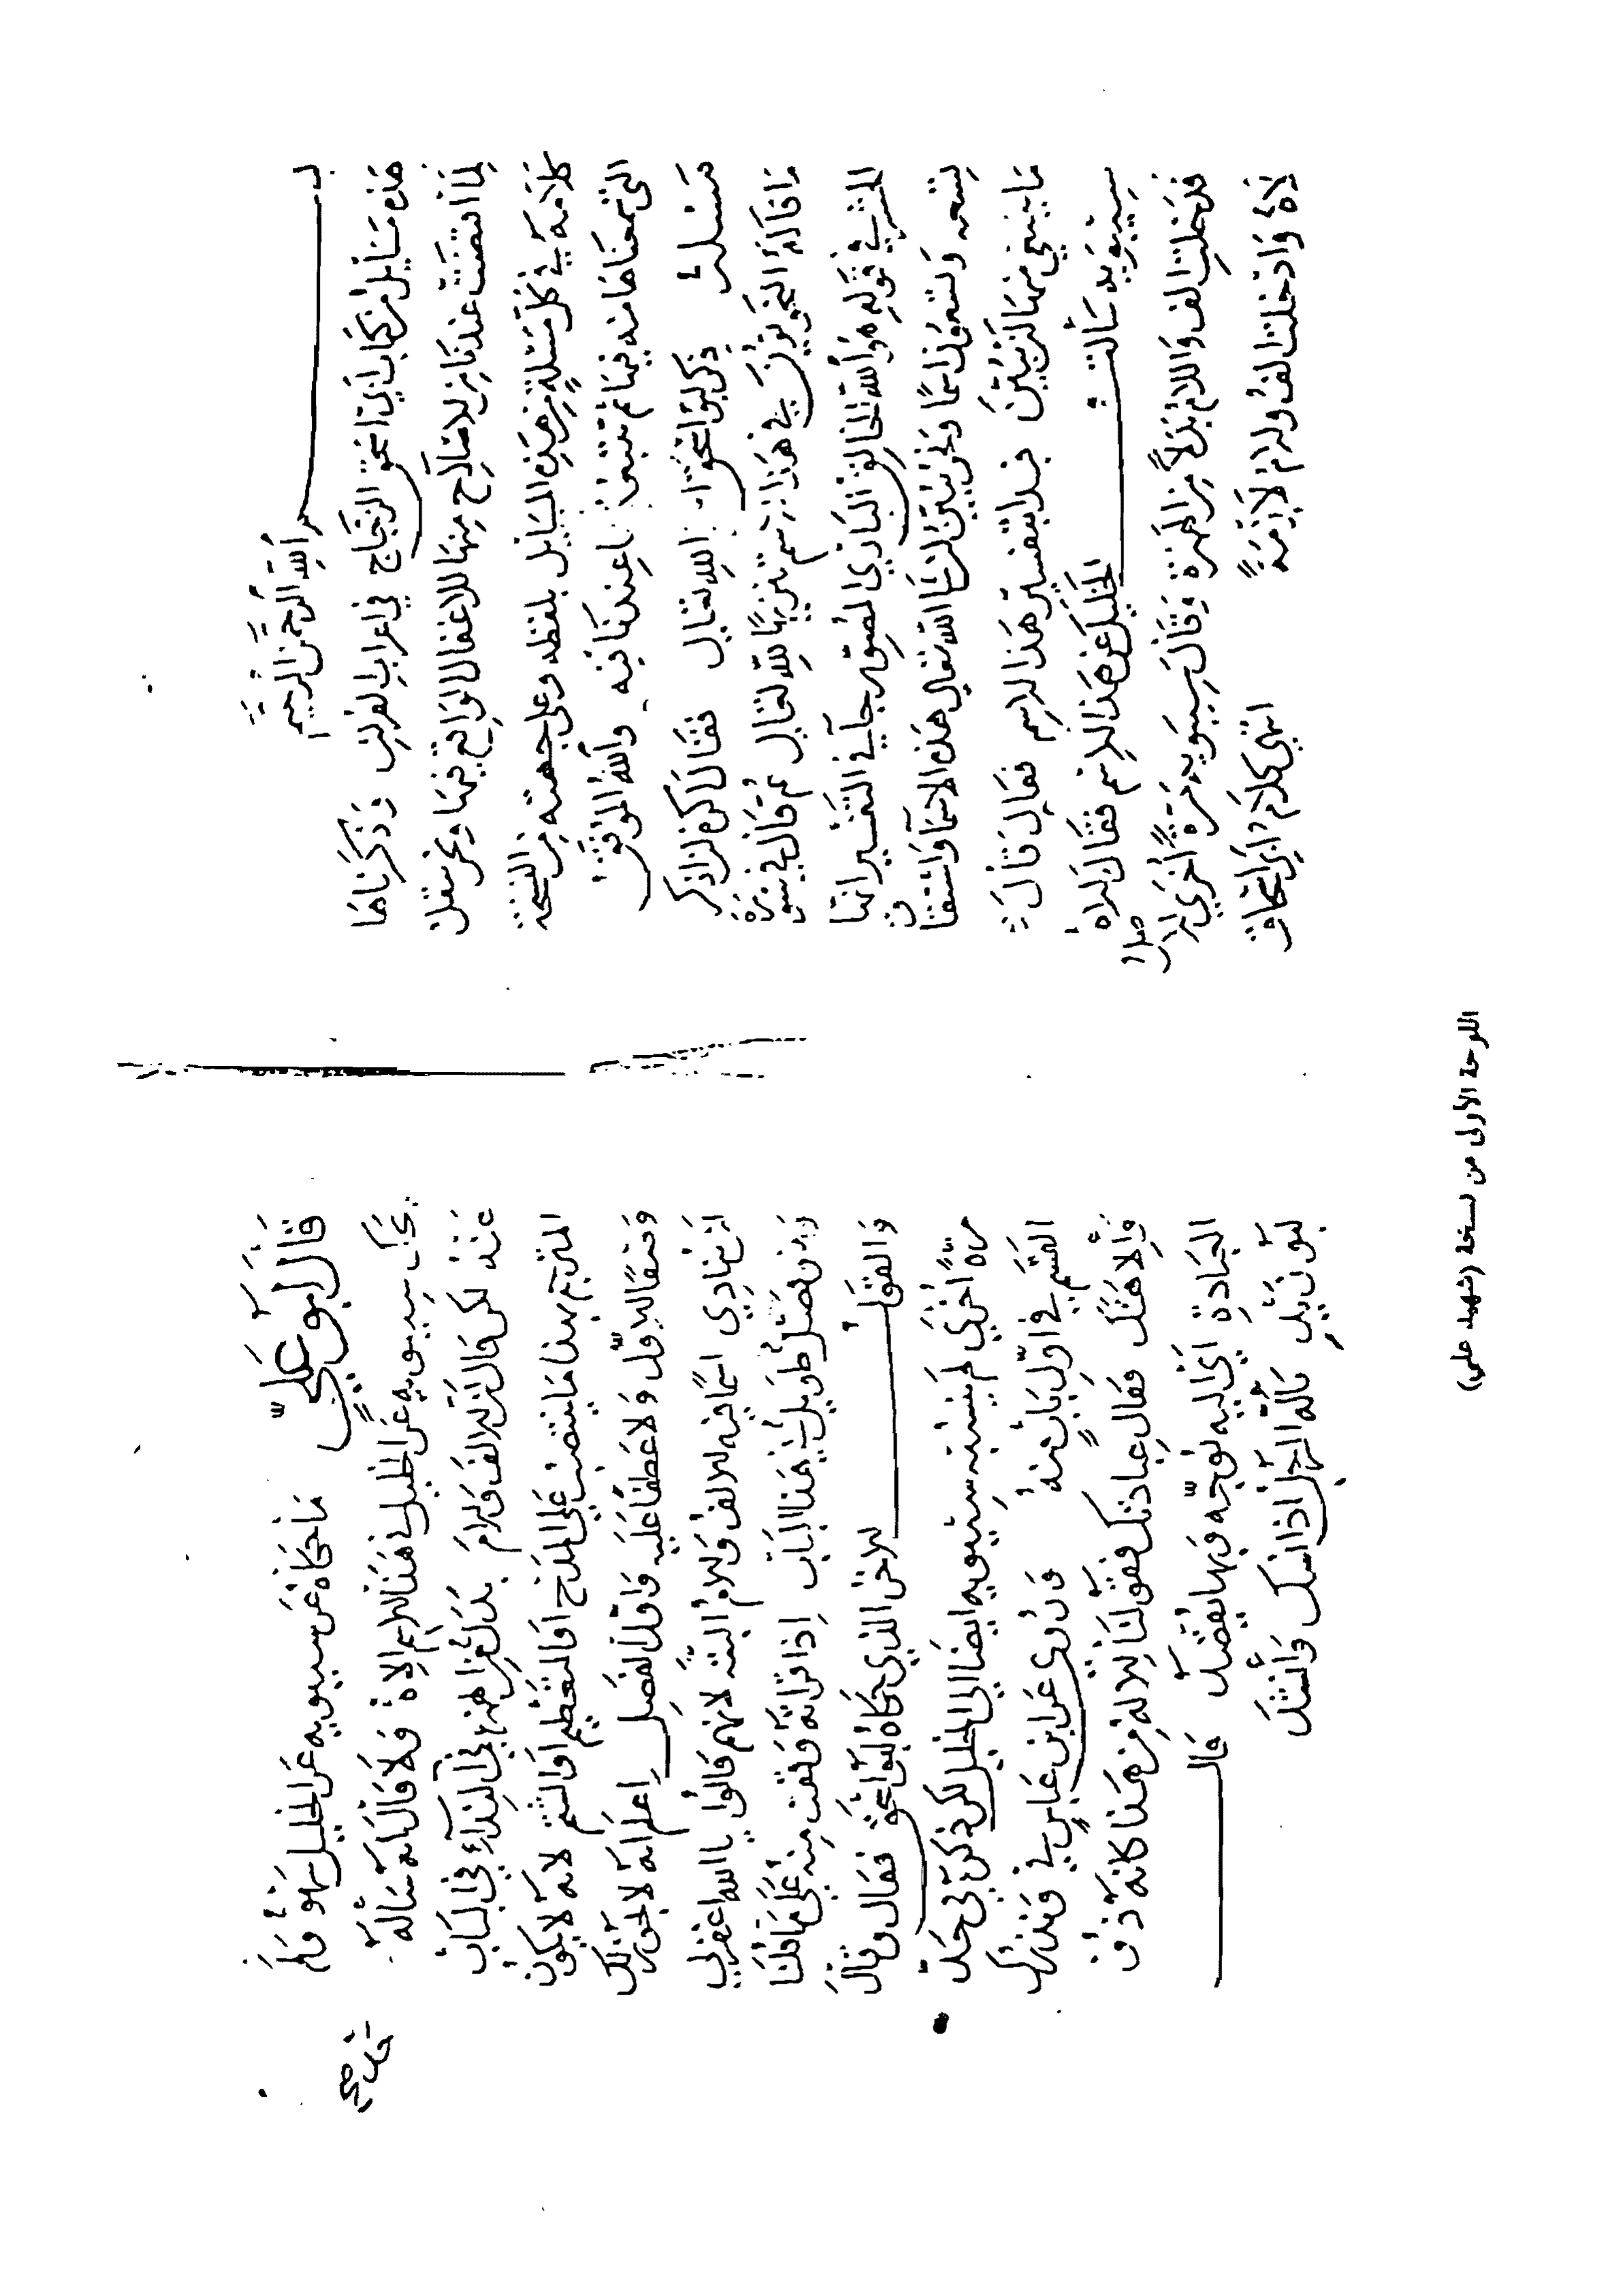 بسم الله الرحمن الرحيم
هذه مسايل من كتاب أبي اسحق الزجاج في اعراب القران وذكرناها
لما اقتضت عندنا من الاصلاح منها للاغفال الواقع فيها ونحن ننقل
كلامه في كل مسئلة من هذه المسايل بلفظه وعلى جهته من النسخة
التي سمعناها منه فيها ثم نتبعه ما عندنا فيه وبالله التوفيق
مسئلة ذكر ابو اسحق الله تعالى فقال اكره ان اذكر
ما قاله النحويون في هذا الاسم تنزيها لله تعالى ثم قال في سورة
الحشر في قوله هو الله الخالق البارئ المصور جا في التفسير انها
تسعه وتسعون اسما ونحن نبين ان شا الله تعالى هذه الاسما واشتقاق
ما ينبغي منها ان نبين فبدا بتفسير هذا الاسم فقال قال
سيبويه سالت الخليل عن هذا الاسم فقال الاصل الاه
فادخلت الف واللام بدلا من الهمزة وقال سيبويه مرة اخرى الاصل
لاه وادخلت الف ولام لازمة انتهى كلام ابي اسحاق
قال ابو علي ما حكاه عن سيبويه عن الخليل سهو ولم
يحك سيبويه عن الخليل في هذا الاسم الاه ولا قال انه سأله
عنه لكن قال ان الالف واللام بدل من الهمزة في النداء في الباب
المترجم هذا ما ينتصب على المدح او التعظيم او الشتم لانه لا يكون
وصفا للاول ولا عطفا عليه واول الفصل اعلم انه لا يجوز لك
ان تنادي اسما فيه الالف واللام البتة لانهم قالوا يا الله اغفر لي
وهو فصل طويل في هذا الباب اذا قراته وقفت منه على ما قلنا
والقول الاخر الذي حكاه ابو اسحق فقال وقال
مرة اخرى لم ينسبه سيبويه ايضا الى الخليل لكن ذكره في حد
القسم في اول باب منه وروى عن ابن عباس في ويذرك
والاهتك فقال عبادتك فقولنا الاله من هذا كانه ذو
العبادة اي اليه توجه وبها يقصد قال
ابو زيد تاله الرجل اذا نسك وانشد
اللوحة الأولى من نسخة (شهيد علي)